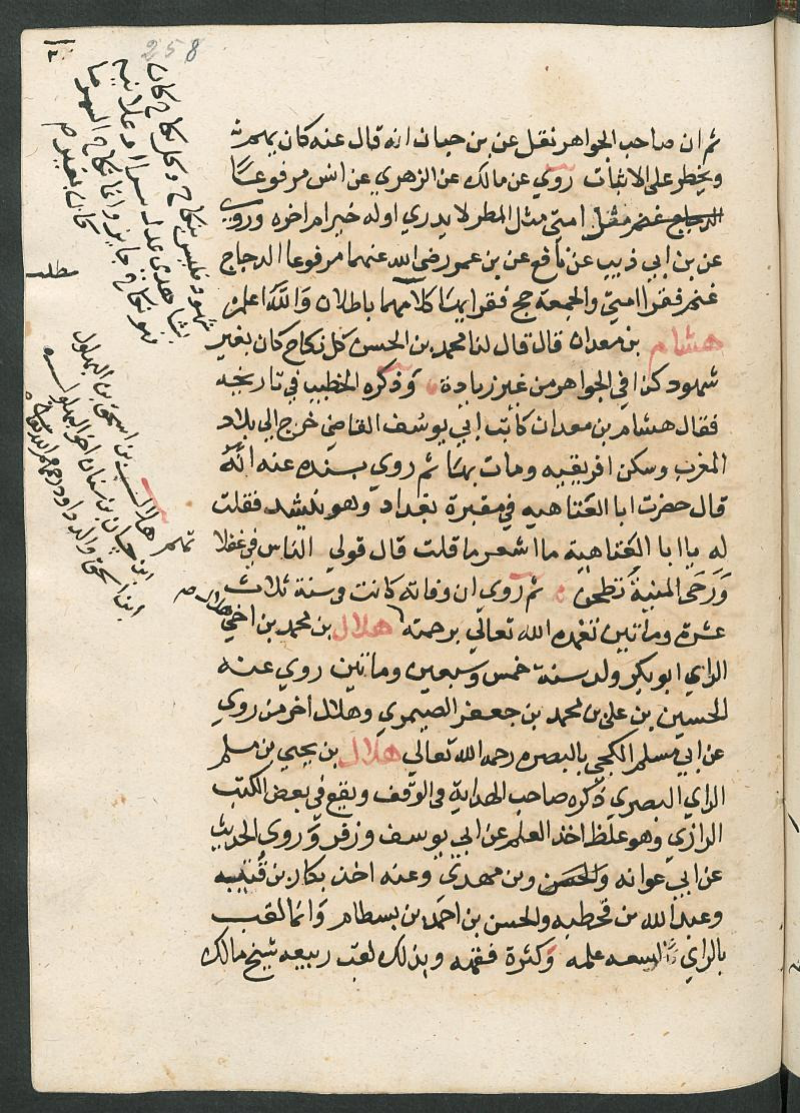 258
ثم ان صاحب الجواهر نقل عن بن حبان انه قال عنه كان يهم
ويخطر على الاثبات روي عن مالك عن الزهري عن انس مرفوعا
امتي مثل المطر لا يدري اوله خير ام اخره وروي
عن بن ابي ذيب عن نافع عن بن عمر رضي الله عنهما مرفوعا الدجاج
غنم فقراامتي والجمعة حج فقرايها كلامهما باطلان والله اعلم
هشام بن معدان قال قال لنا محمد بن الحسن كل نكاح كان بغير
شهود كذا في الجواهر من غير زيادة وذكره الخطيب في تاريخه
فقال هشام بن معدان كاتب ابي يوسف القاضي خرج الى بلاد
المغرب وسكن افريقيه ومات بها ثم روي بسنده عنه انه
قال حضرت ابا العتاهيه في مقبرة بغداد وهو ينشد فقلت
له يا ابا العتاهية ما اشعر ما قلت قال قولي الناس في غفلا
ورحى المنية تطحن ثم روي ان وفاته كانت في سنة ثلاث
عشرة وماتين تغمده الله تعالي برحمته هلال بن محمد بن اخي هلال
الراي ابو بكر ولد سنة خمس وسبعين وماتين روي عنه
الحسين بن علي بن محمد بن جعفر الصيمري وهلال اخر من روي
عن ابي مسلم الكجي بالبصره رحمه الله تعالي هلال بن يحيي بن مسلم
الراي البصري ذكره صاحب الهداية في الوقف ويقع في بعض الكتب
الرازي وهو غلط اخذ العلم عن ابي يوسف وزفر وروى الحديث
عن ابي عوانه وبن مهدي وعنه اخذ بكار بن قتيبه
وعبد الله بن قحطبه والحسن بن احمد بن بسطام وانما لقب
بالراي لسعه علمه وكثرة فقهه وبذلك لقب ربيعه شيخ مالك
شهود فليس بنكاح وكل نكاح كان
بشاهدي عدل سرا او علانيه
فهو نكاح جايز وانما نكاح السر ما
كان بغير
مطلب
هلال بن اسحق بن البهلول
ابن حسان بن سنان